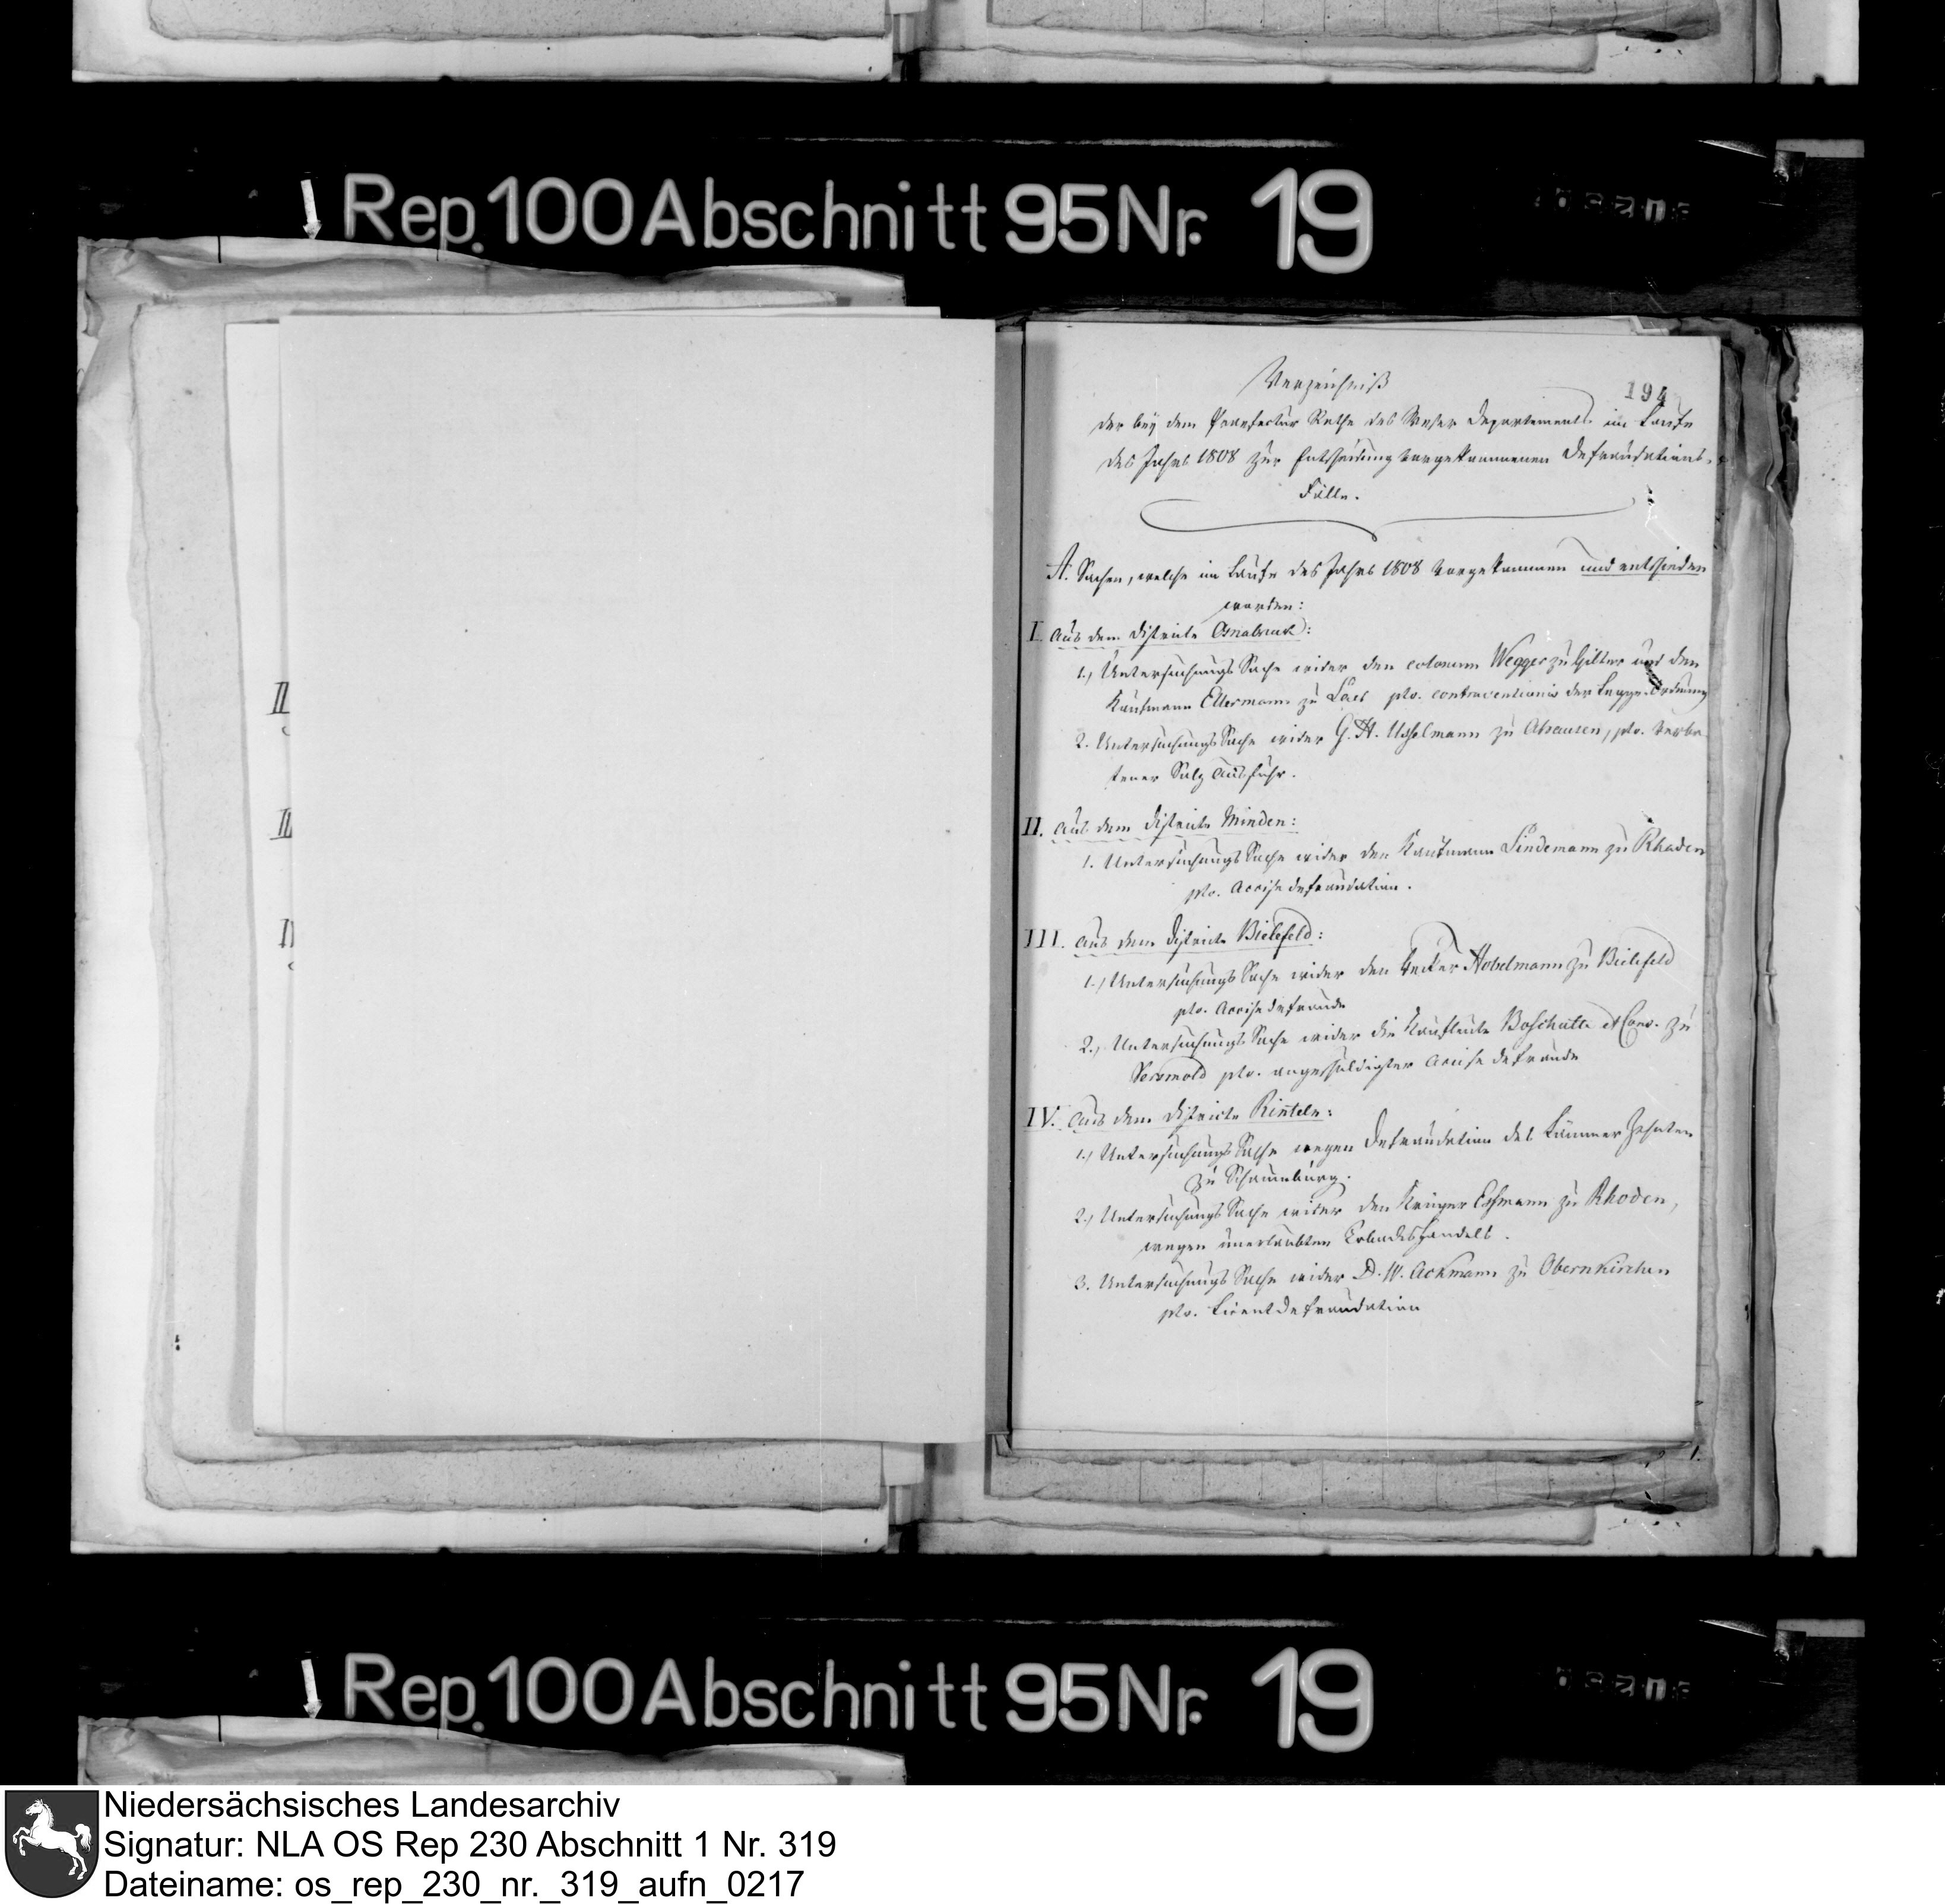 Rep. 100 Abschnitt 95 Nr. 19
194
Verzeichniß
der bey dem Praefectur Rathe des Weser Departements im Laufe
des Jahrs 1808 zur Entscheidung vorgekommenen Defraudations-
Fälle.
A. Sachen, welche im Laufe des Jahrs 1808 vorgekommen und entschieden
worden:
I. Aus dem Districte Osnabruck:
1., Untersuchungs Sache wider den colonum Wegger zu Hilter und den
Kaufmann Ellermann zu Laer pto. contraventionis der Legge-Ordnung
2. Untersuchungs Sache wider G. H. Usselmann zu Ahausen, pto. verbo-
tener Salz Ausfuhr.
II. Aus dem Districte Minden:
1. Untersuchungs Sache wider den Kaufmann Lindemann zu Rhaden
pto. Accise defraudation.
III. Aus dem Districte Bielefeld:
1., Untersuchungs Sache wider den Hobelmann zu Bielefeld
pto. Accise defraude
2., Untersuchungs Sache wider die Kaufleute Boschulte et Cons. zu
Versmold pto. angeschuldigter Accise defraude
IV. Aus dem Districte Rinteln:
1., Untersuchungs Sache wegen Defraudation des Lämmer Zehnten
zu Schaumburg.
2., Untersuchungs Sache wider den Krüger Essmann zu Rhoden,
wegen unerlaubten Tobackshandels.
3. Untersuchungs Sache wider D. W. Ackmann zu Obernkirchen
pto. Licent defraudation
II
II
Rep. 100 Abschnitt 95 Nr. 19
Niedersächsisches Landesarchiv
Signatur: NLA OS Rep 230 Abschnitt 1 Nr. 319
Dateiname: os_rep_230_nr._319_aufn_0217